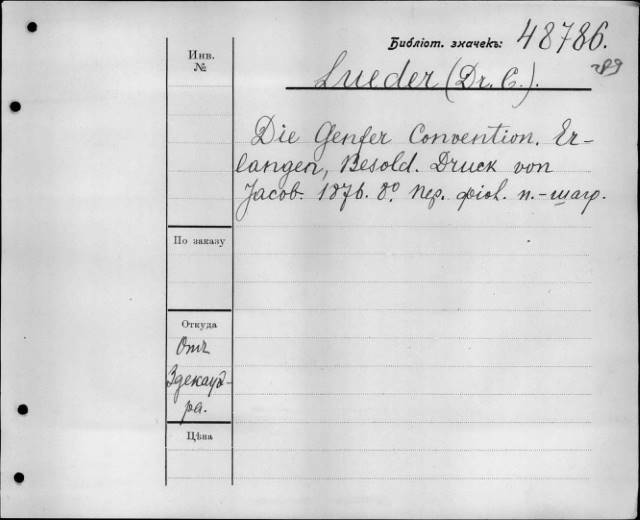 Библіот. значекъ: 48786.
Инв. №
Lueder (Dr. C.).
Die Genfer Convention. Er-
langen, Besold. Druck von
Jacob. 1876. 8°. пер.
По заказу
Откуда
Отъ
Здекауэ-
ра.
Цѣна